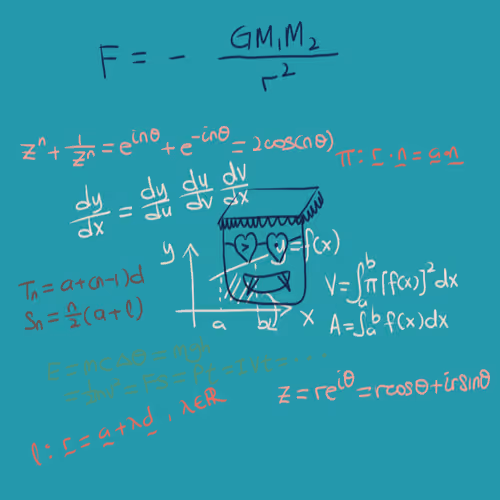 F = - GM₁M₂ / r²
zⁿ + 1/zⁿ = e^{inθ} + e^{-inθ} = 2cos(nθ)
π : r · n = a · n
dy/dx = dy/du du/dv dv/dx
y
y = f(x)
Tₙ = a + (n-1)d
Sₙ = n/2 (a + l)
V = ∫ₐᵇ π[f(x)]² dx
A = ∫ₐᵇ f(x) dx
a b x
z = re^{iθ} = rcosθ + irsinθ
l : r = a + λd , λ∈ℝ